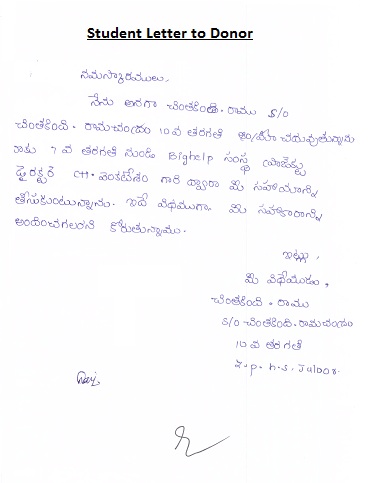 Student Letter to Donor
నమస్కారములు,
నేను అనగా చింతకింది. రాము S/O
చింతకింది. రామచంద్రం 10 వ తరగతి చదువుతున్నాను
నాకు 7 వ తరగతి నుండి Bighelp సంస్థ ప్రాజెక్టు
డైరెక్టర్ CH. వెంకటేశం గారి ద్వారా మీ సహాయాన్ని
తీసుకుంటున్నాను. ఇదే విధముగా మీ సహకారాన్ని
అందించగలరని కోరుతున్నాము.
ఇట్లు,
మీ విధేయుడు,
చింతకింది. రాము
S/O చింతకింది. రామచంద్రం
10 వ తరగతి
Z.p.h.s, Jalbor.